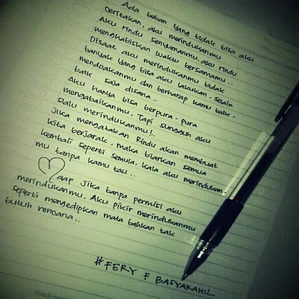 Ada beban yang tidak bisa aku
ceritakan, aku merindukanmu
Aku rindu senyumanmu, aku rindu
menghabiskan waktu bersamamu..
Disaat aku merindukanmu tidak
banyak yang bisa aku lakukan, selain
mendoakanmu dan berharap kamu baik -
baik saja disana..
Aku hanya bisa berpura - pura
mengabaikanmu. Tapi sungguh aku
selalu merindukanmu!.
Jika mengatakan Rindu akan membuat
kita berjarak, maka biarkan semua
kembali seperti semula. Kala aku merindukan
mu tanpa kamu tau..
aap jika tanpa permisi aku
merindukanmu. Aku pikir merindukanmu
seperti mengedipkan mata bahkan tak
butuh rencana..
#FERY F BASYARAHIL